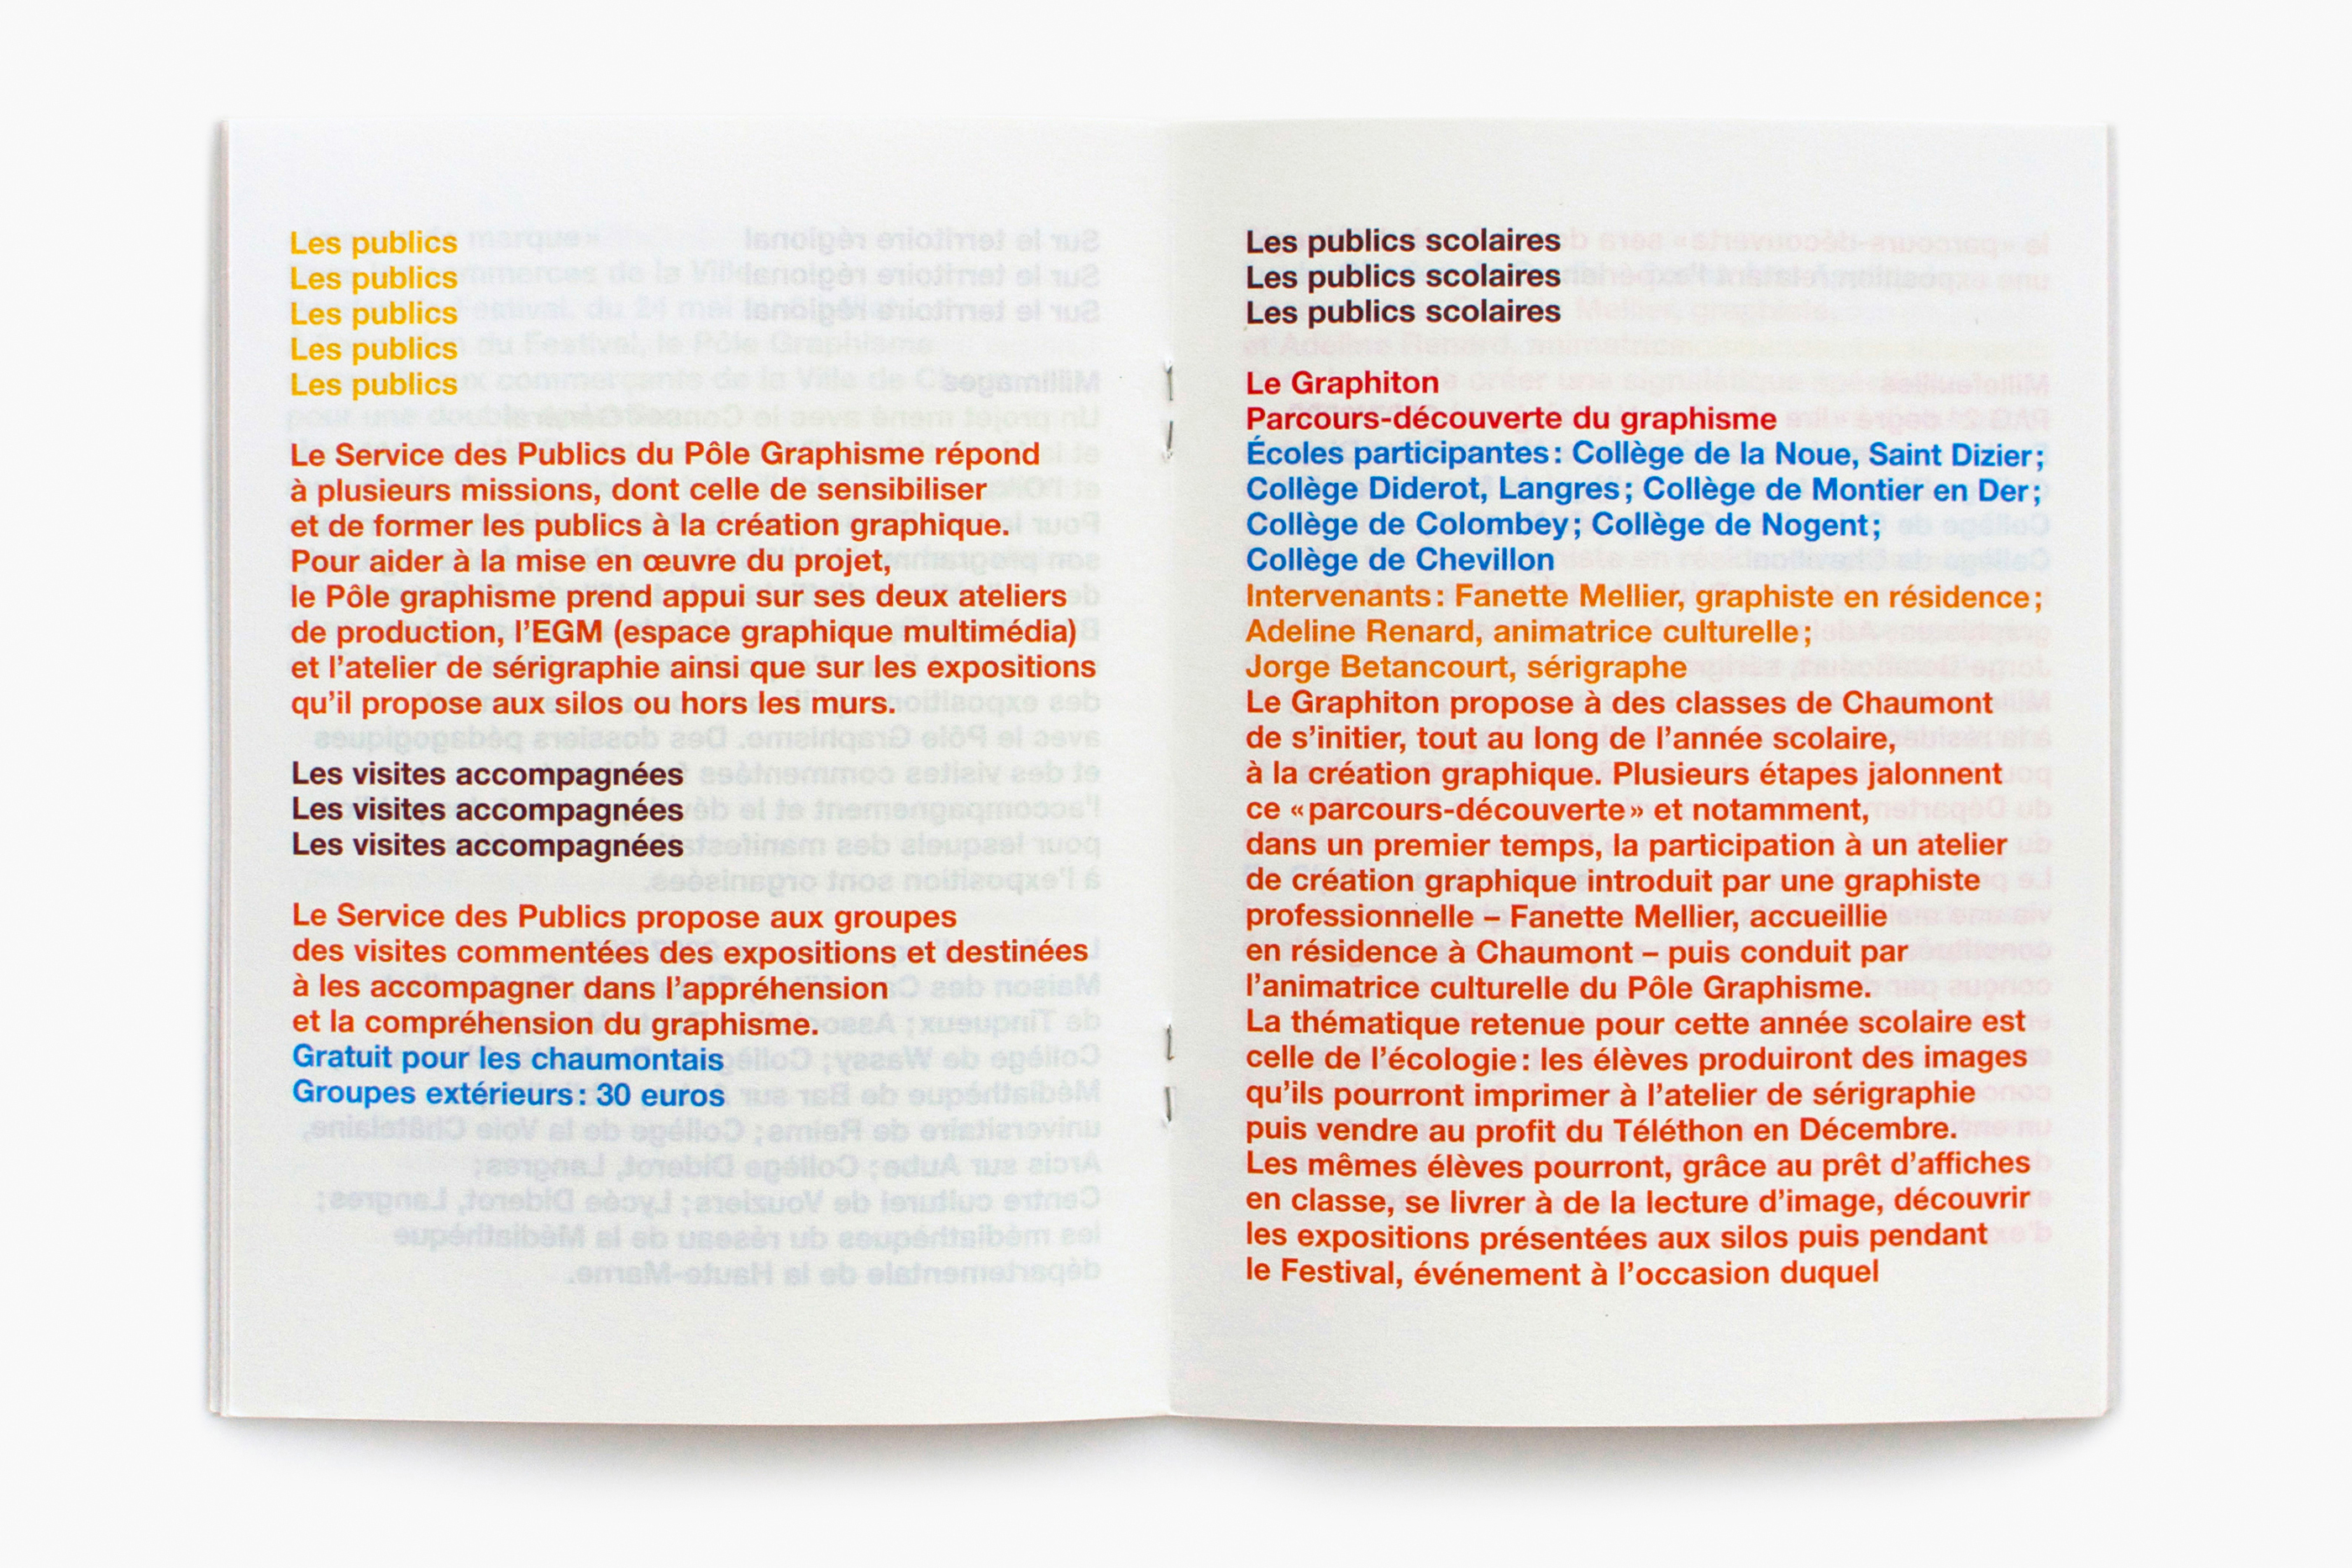 Les publics
Les publics
Les publics
Les publics
Les publics
Le Service des Publics du Pôle Graphisme répond
à plusieurs missions, dont celle de sensibiliser
et de former les publics à la création graphique.
Pour aider à la mise en œuvre du projet,
le Pôle graphisme prend appui sur ses deux ateliers
de production, l’EGM (espace graphique multimédia)
et l’atelier de sérigraphie ainsi que sur les expositions
qu’il propose aux silos ou hors les murs.
Les visites accompagnées
Les visites accompagnées
Les visites accompagnées
Le Service des Publics propose aux groupes
des visites commentées des expositions et destinées
à les accompagner dans l’appréhension
et la compréhension du graphisme.
Gratuit pour les chaumontais
Groupes extérieurs : 30 euros
Les publics scolaires
Les publics scolaires
Les publics scolaires
Le Graphiton
Parcours-découverte du graphisme
Écoles participantes : Collège de la Noue, Saint Dizier ;
Collège Diderot, Langres ; Collège de Montier en Der ;
Collège de Colombey ; Collège de Nogent ;
Collège de Chevillon
Intervenants : Fanette Mellier, graphiste en résidence ;
Adeline Renard, animatrice culturelle ;
Jorge Betancourt, sérigraphe
Le Graphiton propose à des classes de Chaumont
de s’initier, tout au long de l’année scolaire,
à la création graphique. Plusieurs étapes jalonnent
ce « parcours-découverte » et notamment,
dans un premier temps, la participation à un atelier
de création graphique introduit par une graphiste
professionnelle – Fanette Mellier, accueillie
en résidence à Chaumont – puis conduit par
l’animatrice culturelle du Pôle Graphisme.
La thématique retenue pour cette année scolaire est
celle de l’écologie : les élèves produiront des images
qu’ils pourront imprimer à l’atelier de sérigraphie
puis vendre au profit du Téléthon en Décembre.
Les mêmes élèves pourront, grâce au prêt d’affiches
en classe, se livrer à de la lecture d’image, découvrir
les expositions présentées aux silos puis pendant
le Festival, événement à l’occasion duquel